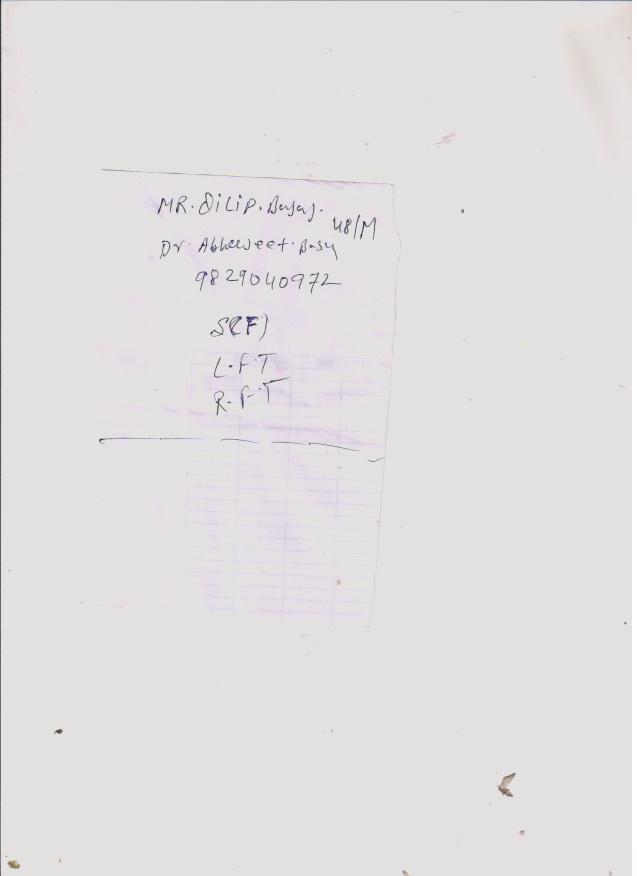 MR. DILIP. Bajaj. 48/M
Dr. Abheejeet. Basu
9829040972
S(F)
L.F.T
R.F.T